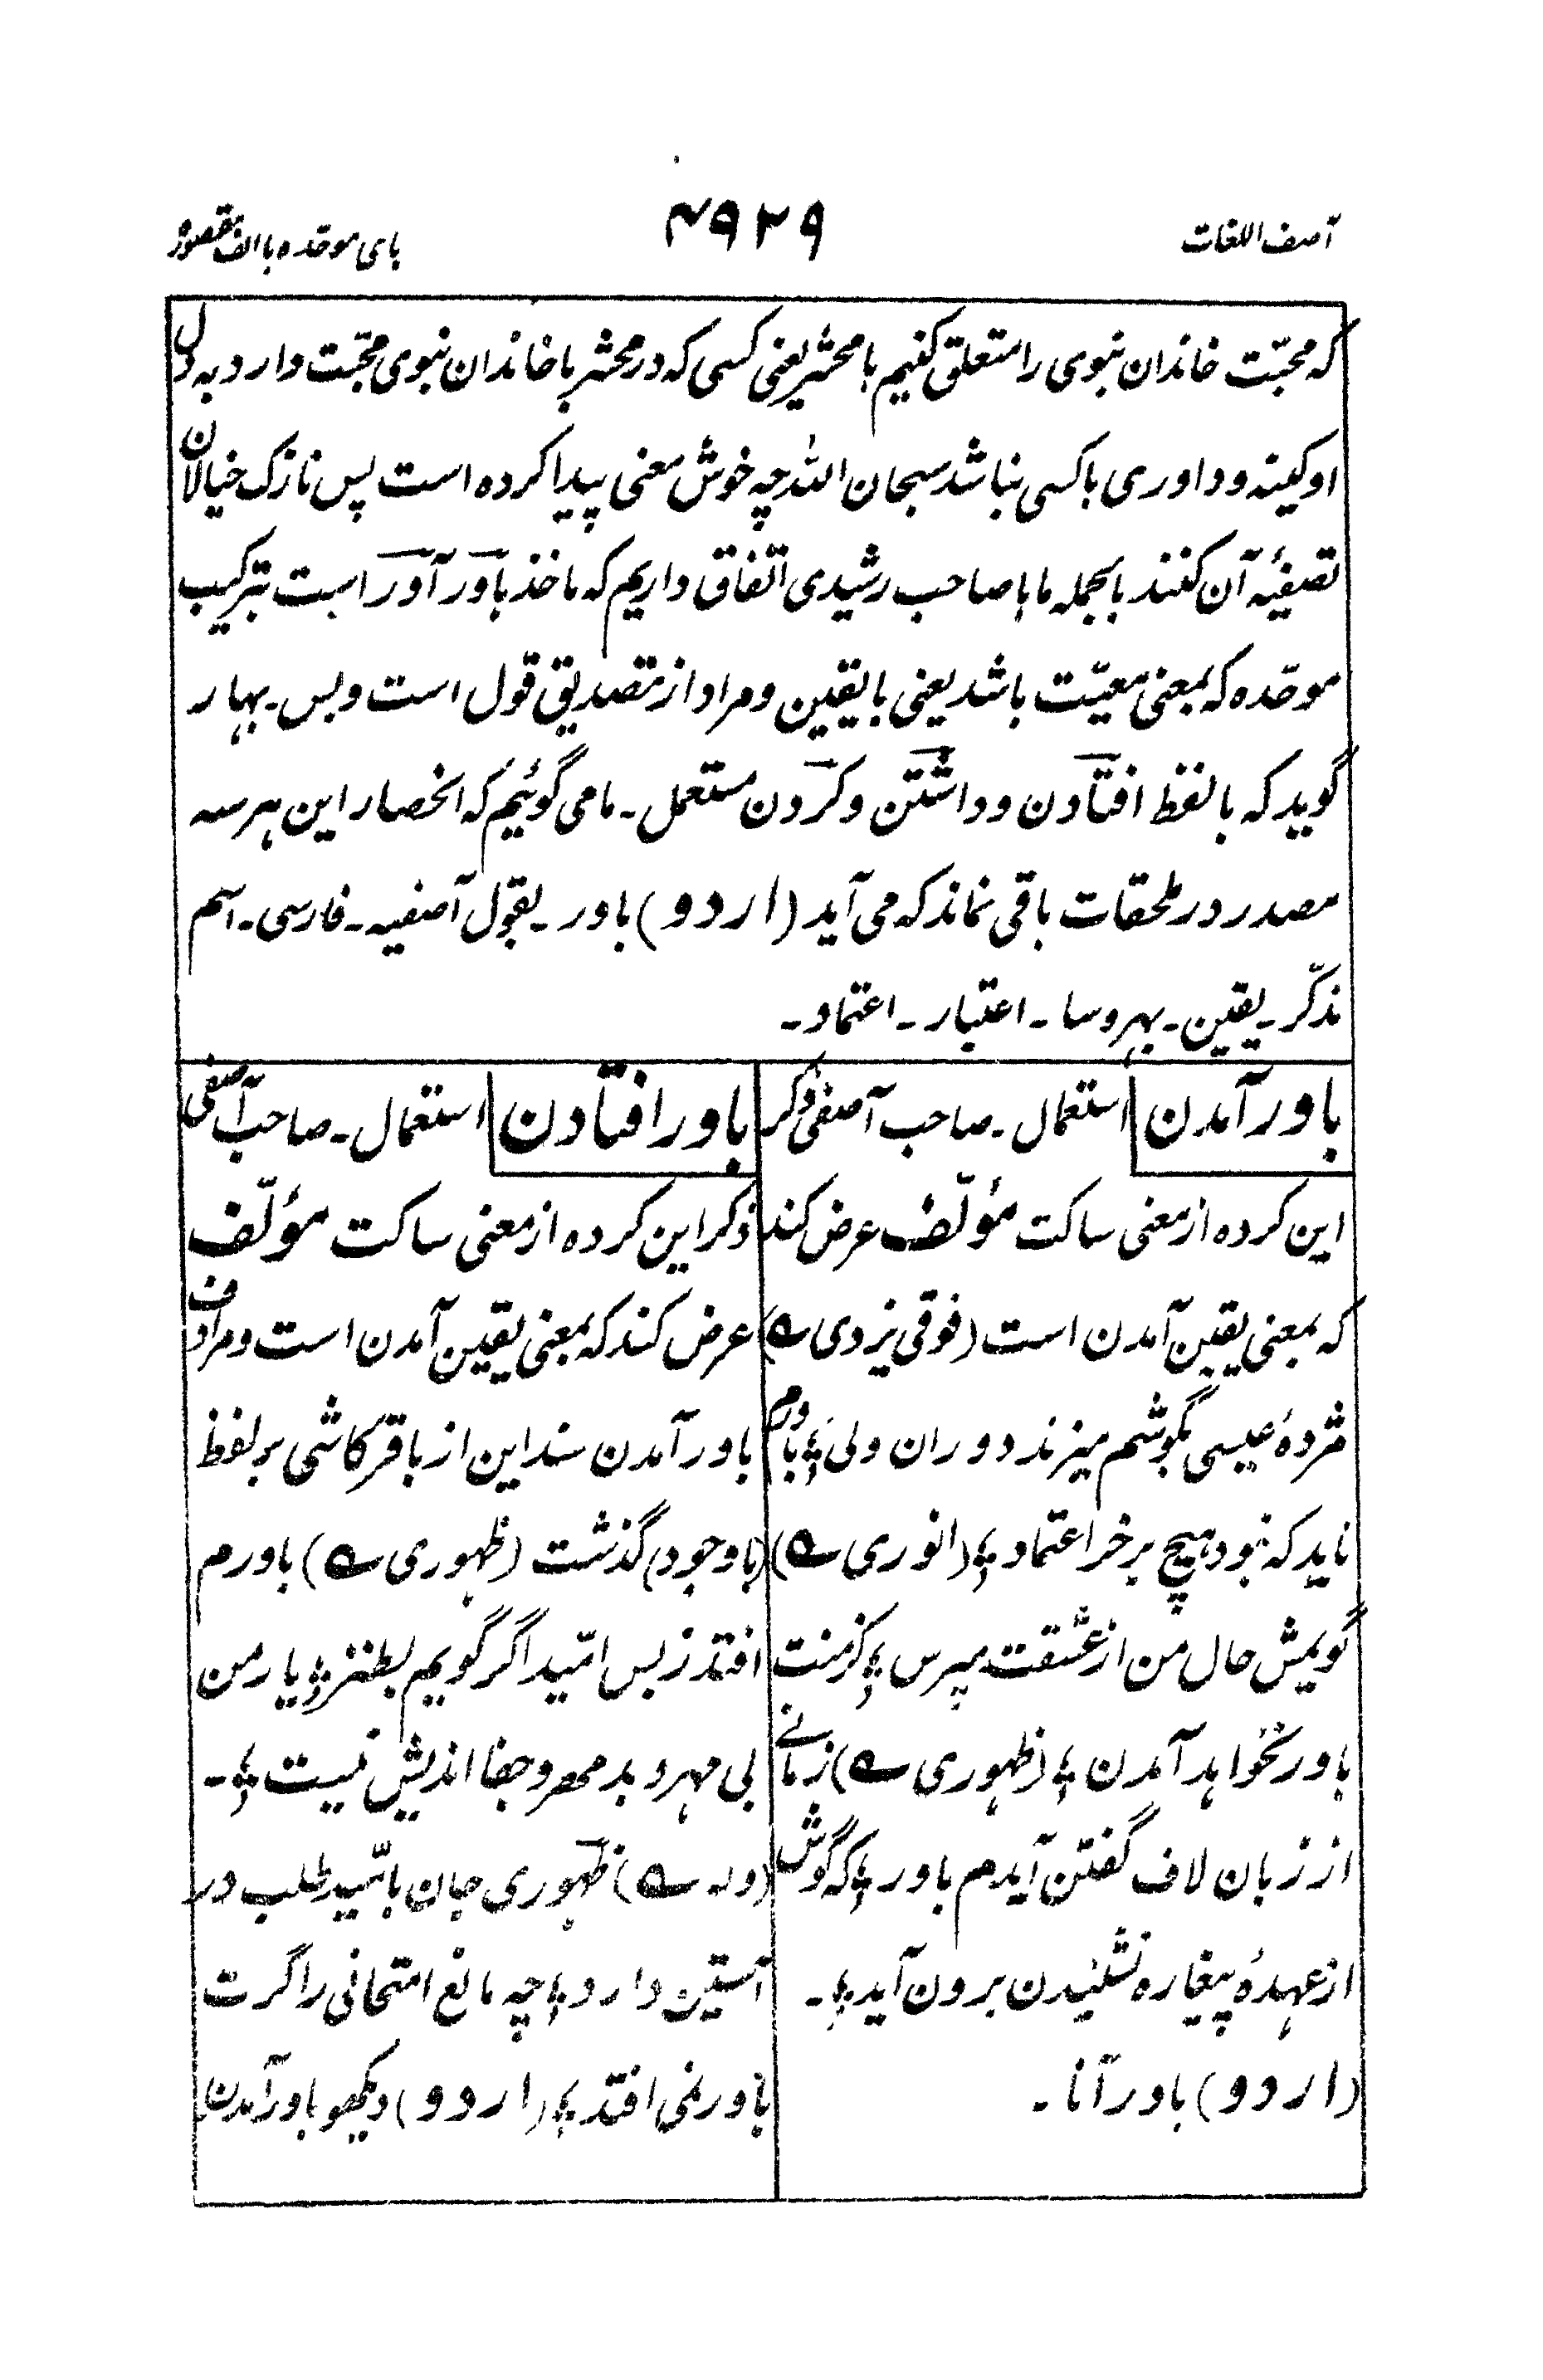 آصف اللغات
۴۹۲۹
بای موحّده باالف مقصوره
که محبّت خاندان نبوی را متعلق کنیم با محشر یعنی کسی که در محشر با خاندان نبوی محبّت دارد به دل
او کینه و داوری با کسی نباشد سبحان اللہ چه خوش معنی پیدا کرده است پس نازک خیالان
تصفیهٔ آن کنند بالجمله ما با صاحب رشیدی اتّفاق داریم که ماخذ باور آور است بترکیب
موحّده که بمعنی معیّت باشد یعنی با یقین و مراد از تصدیق قول است و بس۔ بهار
گوید که بالفظ افتادن و داشتن و کردن مستعمل۔ ما می گوئیم که انحصار این هر سه
مصدر در ملحقات باقی نماند که می آید (اردو) باور۔ بقول آصفیه۔ فارسی۔ اسم
مذکّر۔ یقین۔ بهروسا۔ اعتبار۔ اعتماد۔
باور آمدن | استعمال۔ صاحب آصفی ذکر
این کرده از معنی ساکت مؤلّف عرض کند
که بمعنی یقین آمدن است (فوقی یزدی ؎)
مژدهٔ عیسی بگوشم میزند دوران ولی ؛ باورم
ناید که نبود هیچ بر خر اعتماد ؛ (انوری ؎)
گویمش حال من از عشقت مپرس ؛ کز منت
باور نخواهد آمدن ؛ (ظهوری ؎) زمانے
از زبان لاف گفتن آیدم باور ؛ که گوش
از عهدهٔ پیغاره نشنیدن برون آید ؛۔
(اردو) باور آنا۔
باور افتادن | استعمال۔ صاحب آصفی
ذکر این کرده از معنی ساکت مؤلّف
عرض کند که بمعنی یقین آمدن است و مرادف
باور آمدن سند این از باقر کاشی بر لفظ
(باوجود) گذشت (ظهوری ؎) باورم
افتد ز بس امّید اگر گویم بطنز ؛ یار من
بی مهر و بد مهر و جفا اندیش نیست ؛۔
(وله ؎) ظهوری جان بامّید طلب در
آستین دارد ؛ چه مانع امتحانی را گرت
باور نمی افتد ؛ (اردو) دیکھو باور آمدن۔